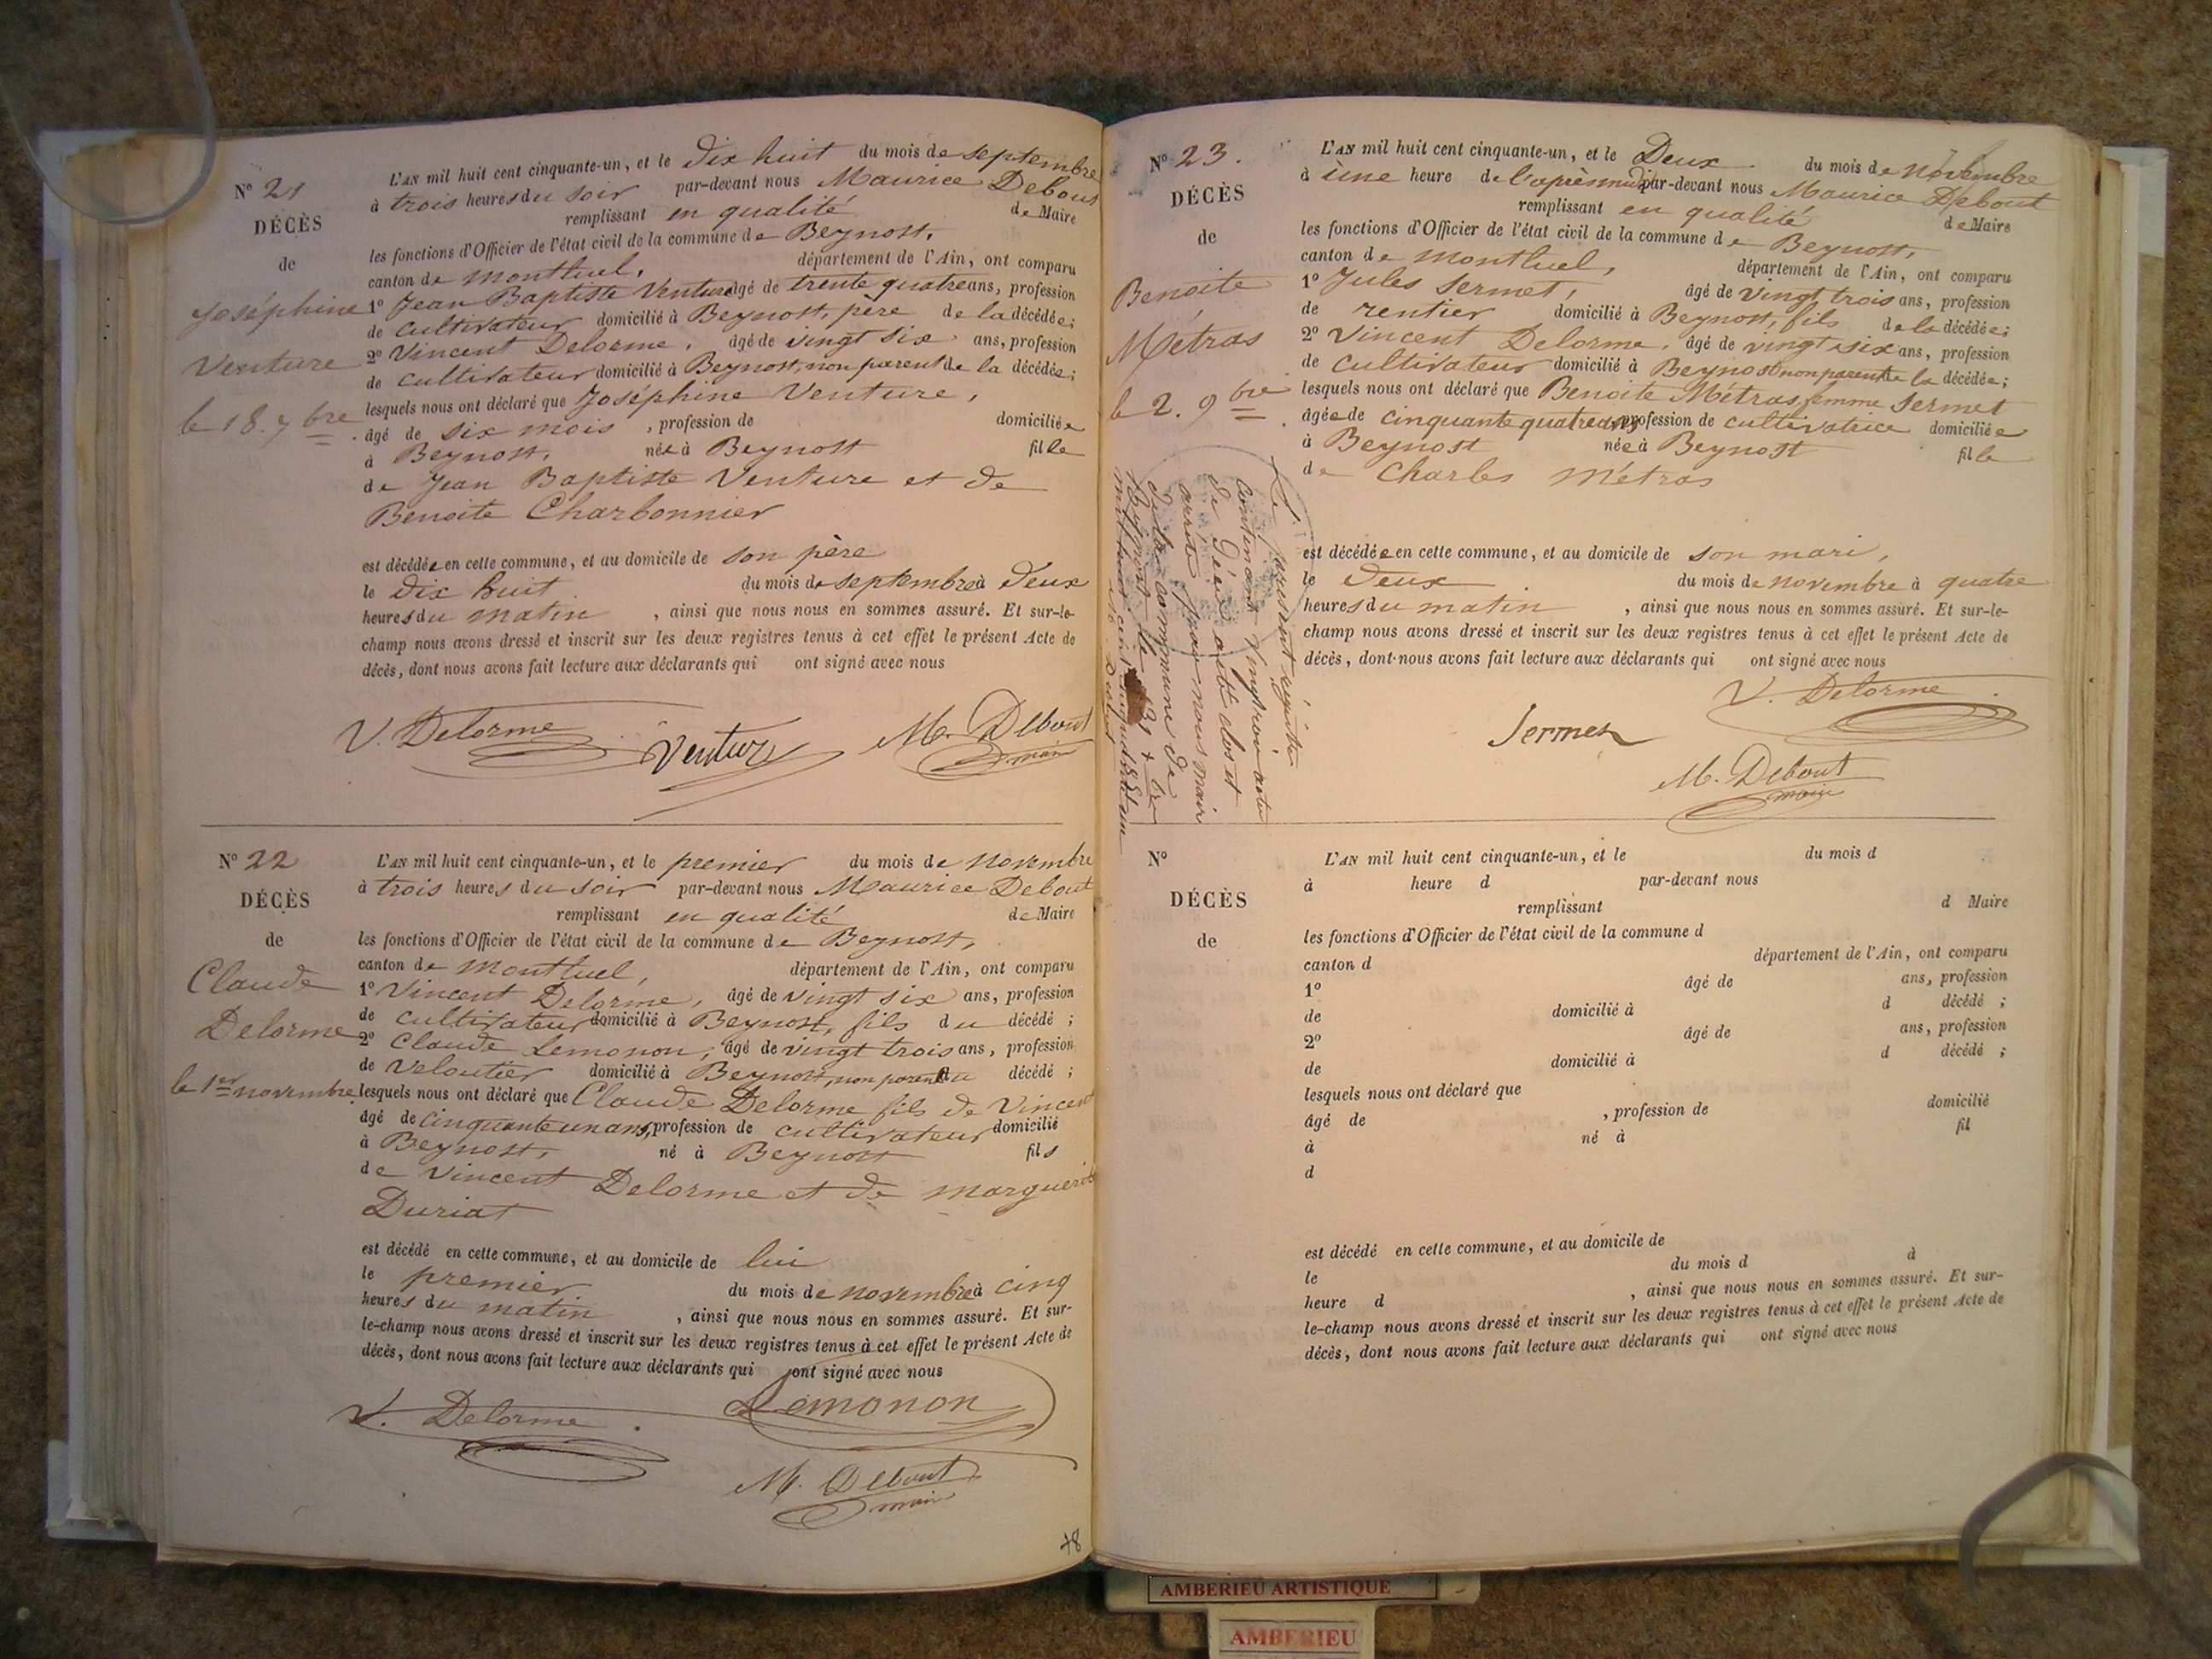 N° 21
DÉCÈS
de
Joséphine
Venture
le 18. 7bre
L'AN mil huit cent cinquante-un, et le dix huit du mois de septembre
à trois heures du soir par-devant nous Maurice Debout
remplissant en qualité de Maire
les fonctions d'Officier de l'état civil de la commune de Beynost,
canton de montluel, département de l'Ain, ont comparu
1° Jean Baptiste Venture âgé de trente quatre ans, profession
de cultivateur domicilié à Beynost, père de la décédée;
2° Vincent Delorme, âgé de vingt six ans, profession
de cultivateur domicilié à Beynost, non parent de la décédée;
lesquels nous ont déclaré que Joséphine Venture,
âgé de six mois, profession de domiciliée
à Beynost, née à Beynost fille
de Jean Baptiste Venture et de
Benoite Charbonnier
est décédée en cette commune, et au domicile de son père
le dix huit du mois de septembre à deux
heures du matin, ainsi que nous nous en sommes assuré. Et sur-le-
champ nous avons dressé et inscrit sur les deux registres tenus à cet effet le présent Acte de
décès, dont nous avons fait lecture aux déclarants qui ont signé avec nous
V. Delorme Venture M. Debout
maire
N° 22
DÉCÈS
de
Claude
Delorme
le 1er novembre
L'AN mil huit cent cinquante-un, et le premier du mois de novembre
à trois heures du soir par-devant nous Maurice Debout
remplissant en qualité de Maire
les fonctions d'Officier de l'état civil de la commune de Beynost,
canton de montluel, département de l'Ain, ont comparu
1° Vincent Delorme, âgé de vingt six ans, profession
de cultivateur domicilié à Beynost, fils du décédé;
2° Claude Lemonon, âgé de vingt trois ans, profession
de veloutier domicilié à Beynost, non parent du décédé;
lesquels nous ont déclaré que Claude Delorme fils de Vincent
âgé de cinquante un ans, profession de cultivateur domicilié
à Beynost, né à Beynost fils
de Vincent Delorme et de marguerite
Duriat
est décédé en cette commune, et au domicile de lui
le premier du mois de novembre à cinq
heures du matin, ainsi que nous nous en sommes assuré. Et sur-
le-champ nous avons dressé et inscrit sur les deux registres tenus à cet effet le présent Acte de
décès, dont nous avons fait lecture aux déclarants qui ont signé avec nous
V. Delorme Lemonon
M. Debout
maire
78
N° 23.
DÉCÈS
de
Benoite
Métras
le 2. 9bre
L'AN mil huit cent cinquante-un, et le Deux du mois de novembre
à une heure de l'après midi par-devant nous Maurice Debout
remplissant en qualité de Maire
les fonctions d'Officier de l'état civil de la commune de Beynost,
canton de montluel, département de l'Ain, ont comparu
1° Jules Sermet, âgé de vingt trois ans, profession
de rentier domicilié à Beynost, fils de la décédée;
2° Vincent Delorme, âgé de vingt six ans, profession
de cultivateur domicilié à Beynost non parent de la décédée;
lesquels nous ont déclaré que Benoite Métras femme Sermet
âgée de cinquante quatre ans, profession de cultivatrice domiciliée
à Beynost née à Beynost fille
de Charles Métras
est décédée en cette commune, et au domicile de son mari,
le deux du mois de novembre à quatre
heures du matin, ainsi que nous nous en sommes assuré. Et sur-le-
champ nous avons dressé et inscrit sur les deux registres tenus à cet effet le présent Acte de
décès, dont nous avons fait lecture aux déclarants qui ont signé avec nous
V. Delorme
Sermet
M. Debout
maire
Le présent régistre
contenant vingt trois actes
de Décès a été clos et
arrêté par nous maire
de la commune de
Beynost le 31 Xbre
mil huit cent cinquante un
N°
DÉCÈS
de
L'AN mil huit cent cinquante-un, et le du mois d
à heure d par-devant nous
remplissant d Maire
les fonctions d'Officier de l'état civil de la commune d
canton d département de l'Ain, ont comparu
1° âgé de ans, profession
de domicilié à d décédé ;
2° âgé de ans, profession
de domicilié à d décédé ;
lesquels nous ont déclaré que
âgé de , profession de domicilié
à né à fil
d
est décédé en cette commune, et au domicile de
le du mois d à
heure d , ainsi que nous nous en sommes assuré. Et sur-
le-champ nous avons dressé et inscrit sur les deux registres tenus à cet effet le présent Acte de
décès, dont nous avons fait lecture aux déclarants qui ont signé avec nous
AMBERIEU ARTISTIQUE
AMBERIEU